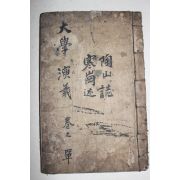 陶山誌
寒岡述
大學演義 卷之單